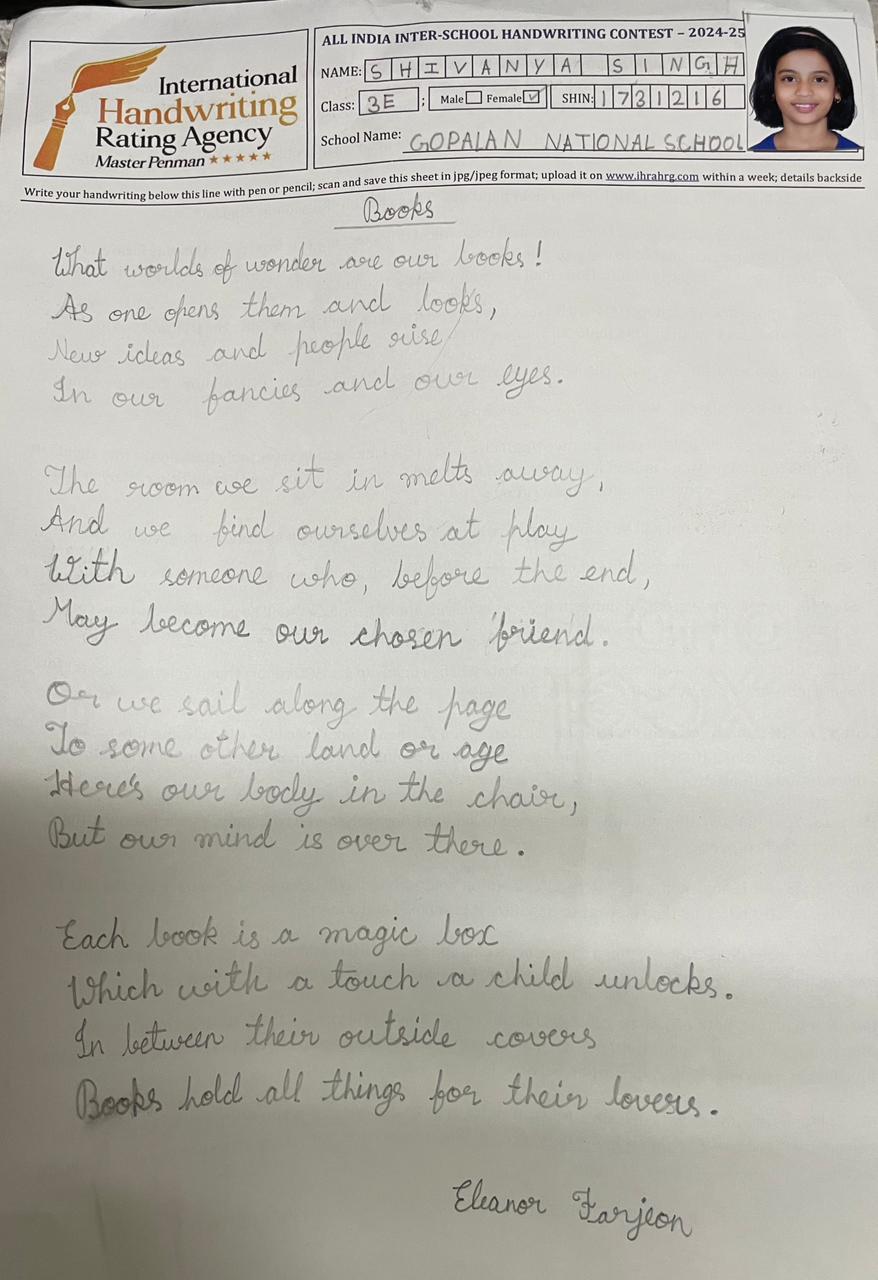 International
Handwriting
Rating Agency
Master Penman
ALL INDIA INTER-SCHOOL HANDWRITING CONTEST – 2024-25
NAME: SHIVANYA SINGH
Class: 3E ; Male Female SHIN: 1731216
School Name: GOPALAN NATIONAL SCHOOL
Write your handwriting below this line with pen or pencil; scan and save this sheet in jpg/jpeg format; upload it on www.ihrahrg.com within a week; details backside
Books
What worlds of wonder are our books!
As one opens them and looks,
New ideas and people rise
In our fancies and our eyes.
The room we sit in melts away,
And we find ourselves at play
With someone who, before the end,
May become our chosen friend.
Or we sail along the page
To some other land or age
Here's our body in the chair,
But our mind is over there.
Each book is a magic box
Which with a touch a child unlocks.
In between their outside covers
Books hold all things for their lovers.
Eleanor Farjeon